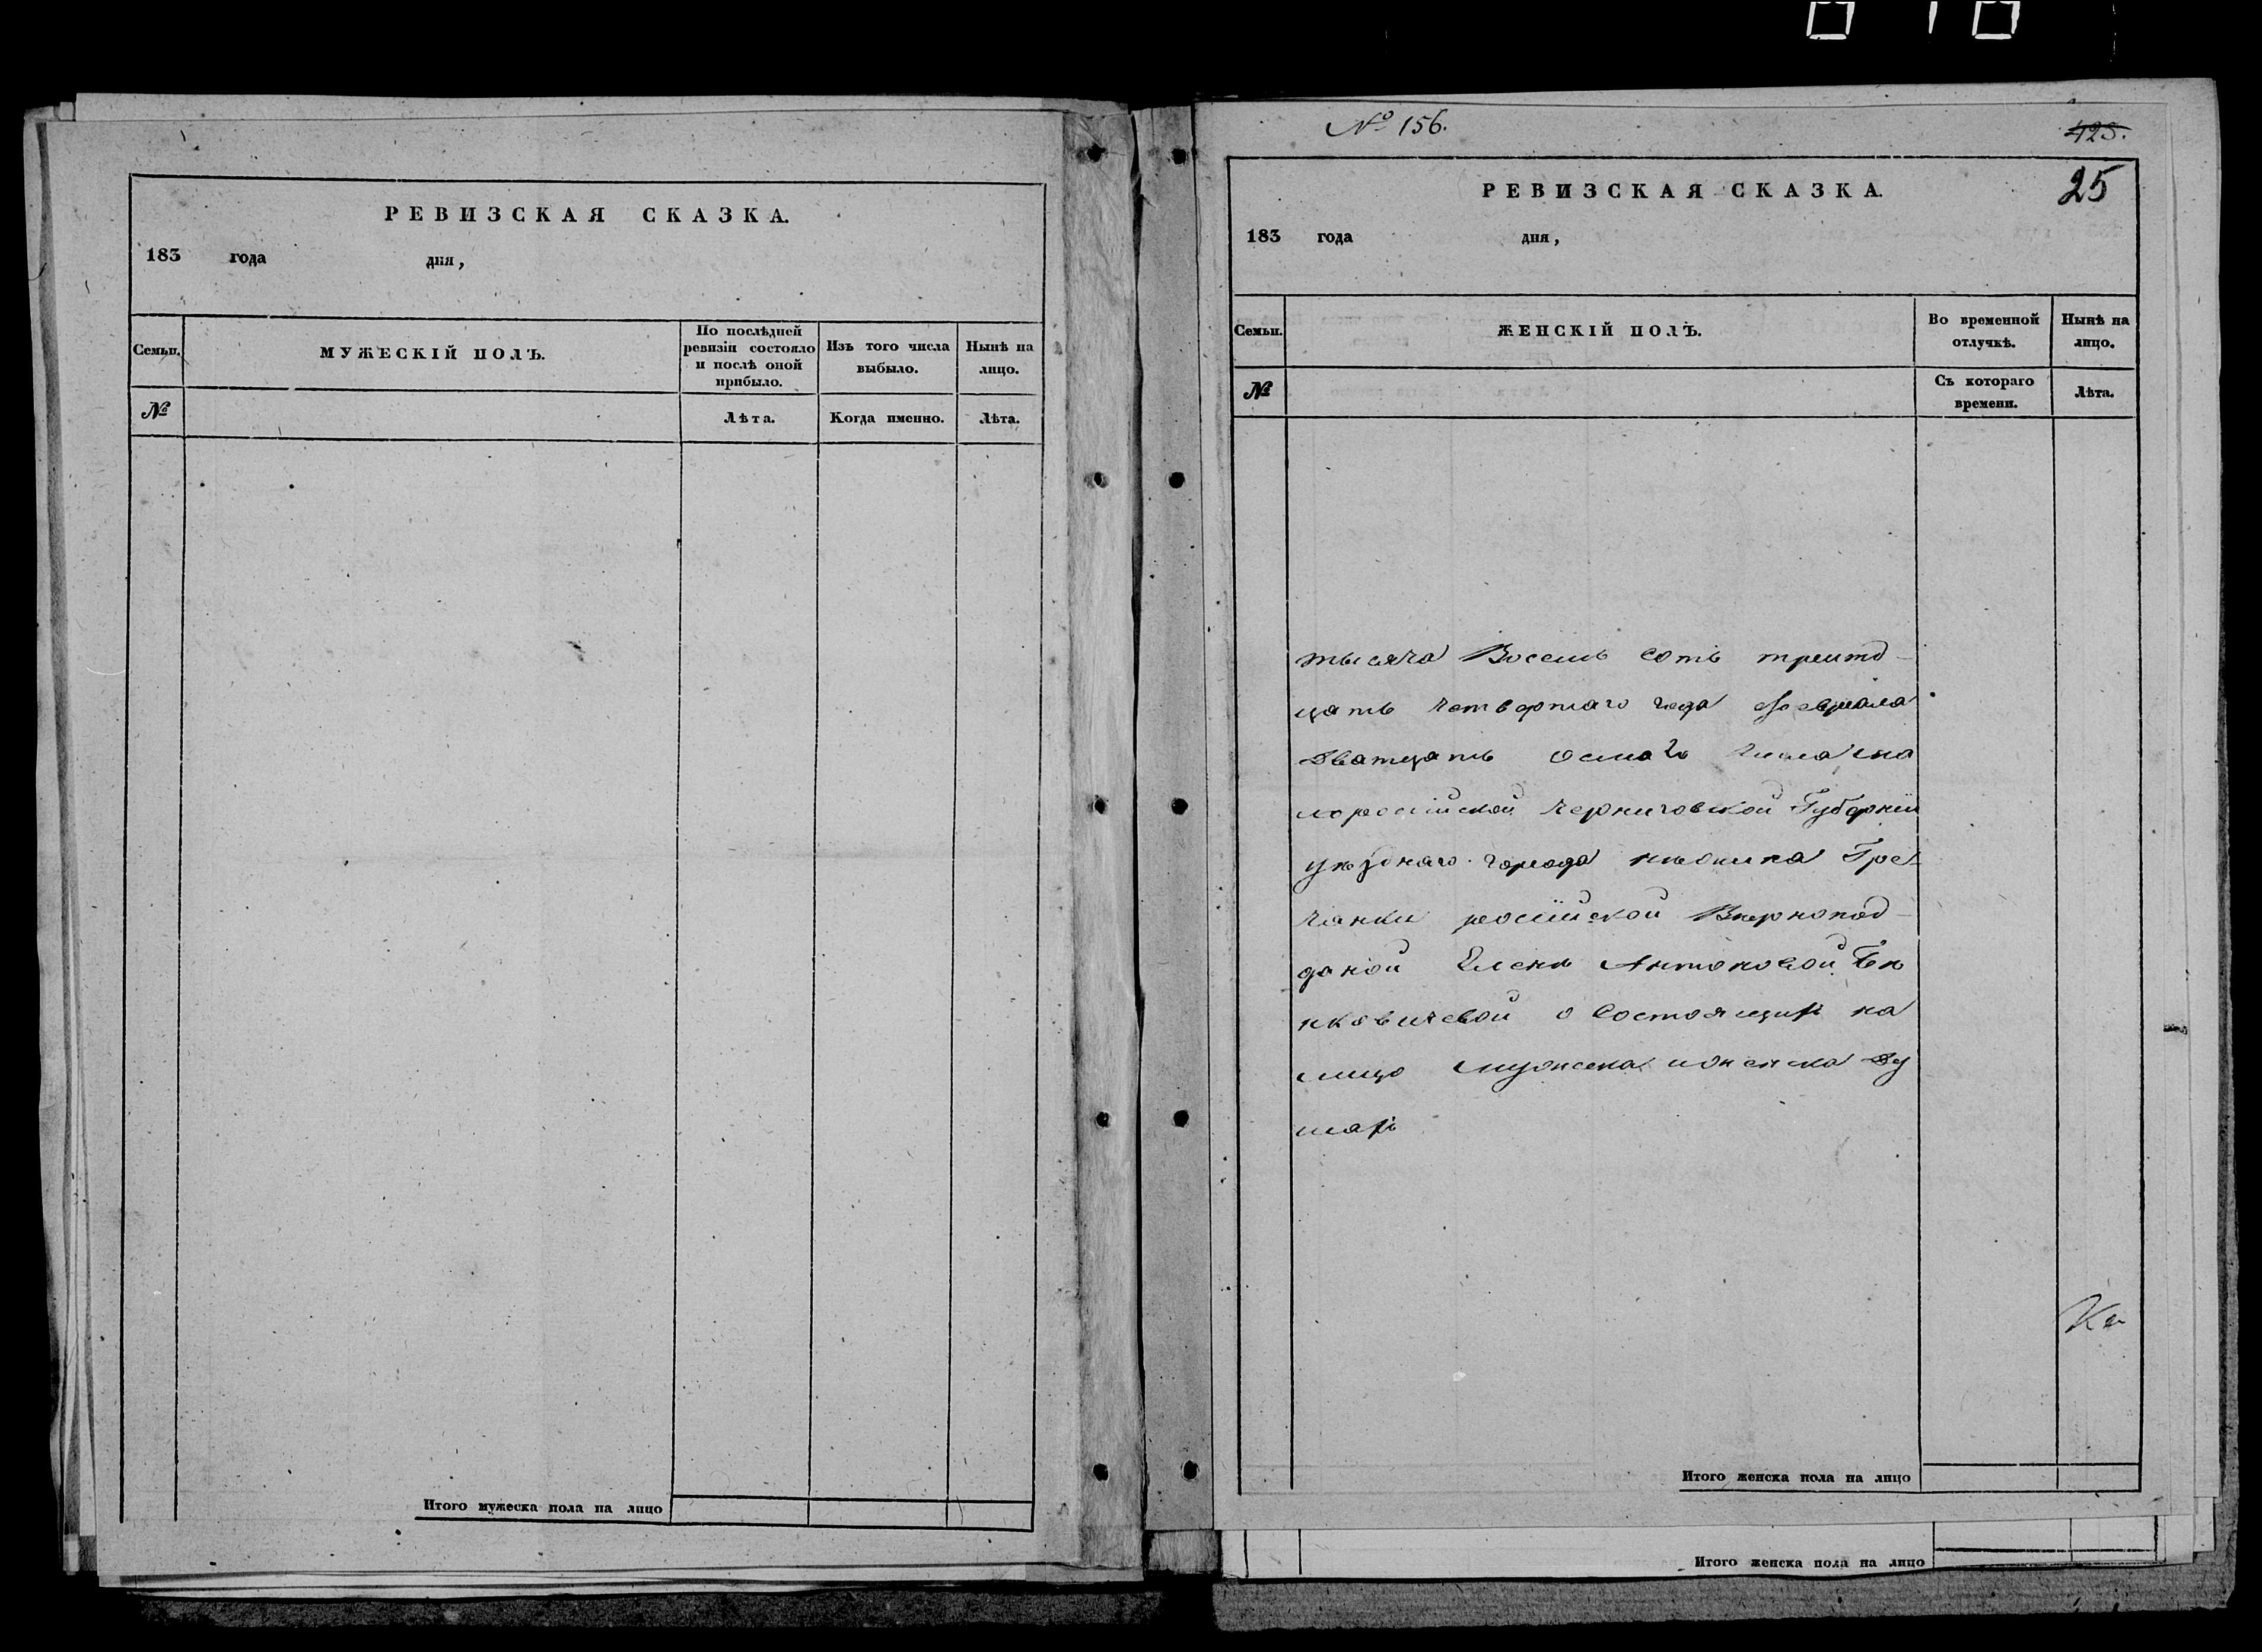 РЕВИЗСКАЯ СКАЗКА.
183 года дня,
Семьи. МУЖЕСКІЙ ПОЛЪ. По послѣдней ревизіи состояло и послѣ оной прибыло. Изъ того числа выбыло. Нынѣ на лицо.
№ Лѣта. Когда именно. Лѣта.
Итого мужеска пола на лицо
№ 156.
425.
25
РЕВИЗСКАЯ СКАЗКА.
183 года дня,
Семьи. ЖЕНСКІЙ ПОЛЪ. Во временной отлучкѣ. Нынѣ на лицо.
№ Съ котораго времени. Лѣта.
тысяча Восемь сотъ тритд-
цать четвертаго года февраля
дватцать осмаго числа ма
лоросiйской черниговской Губернiи
уѣзднаго города нѣжина Гре-
чанки росiйской Вѣрнопод-
даной Елены Антоновой
о состоящихъ на
лицо мужска и женска ду
шахъ
Итого женска пола на лицо
Итого женска пола на лицо